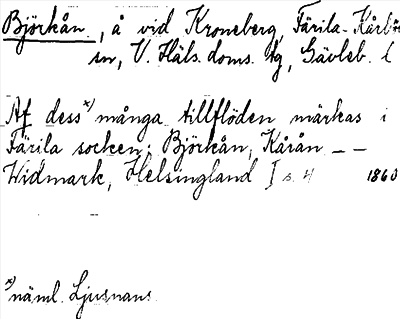 Björkån, å vid Kroneberg, Färila-Kårbö
sn, V. Häls. doms. tg, Gävleb. l
Af dess *) många tillflöden märkas i
Färila socken: Björkån, Kårån _ _
Widmark, Helsingland I s. 4 1860
*) näml. Ljusnans